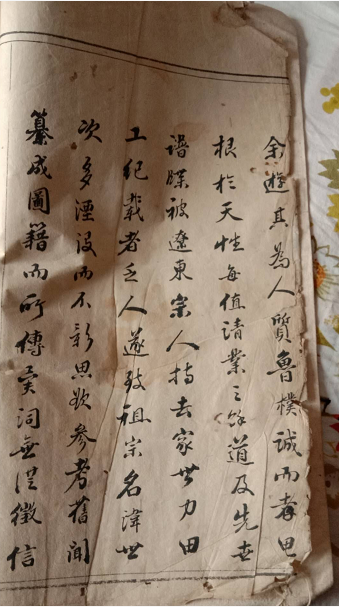 余遊其為人質魯樸誠而孝思
根於天性每值請業之餘道及先世
譜牒被遼東宗人持去家世力田
工紀載者乏人遂致祖宗名諱世
次多湮没而不彰思欲參考舊聞
纂成圖籍而所傳異詞無從徵信